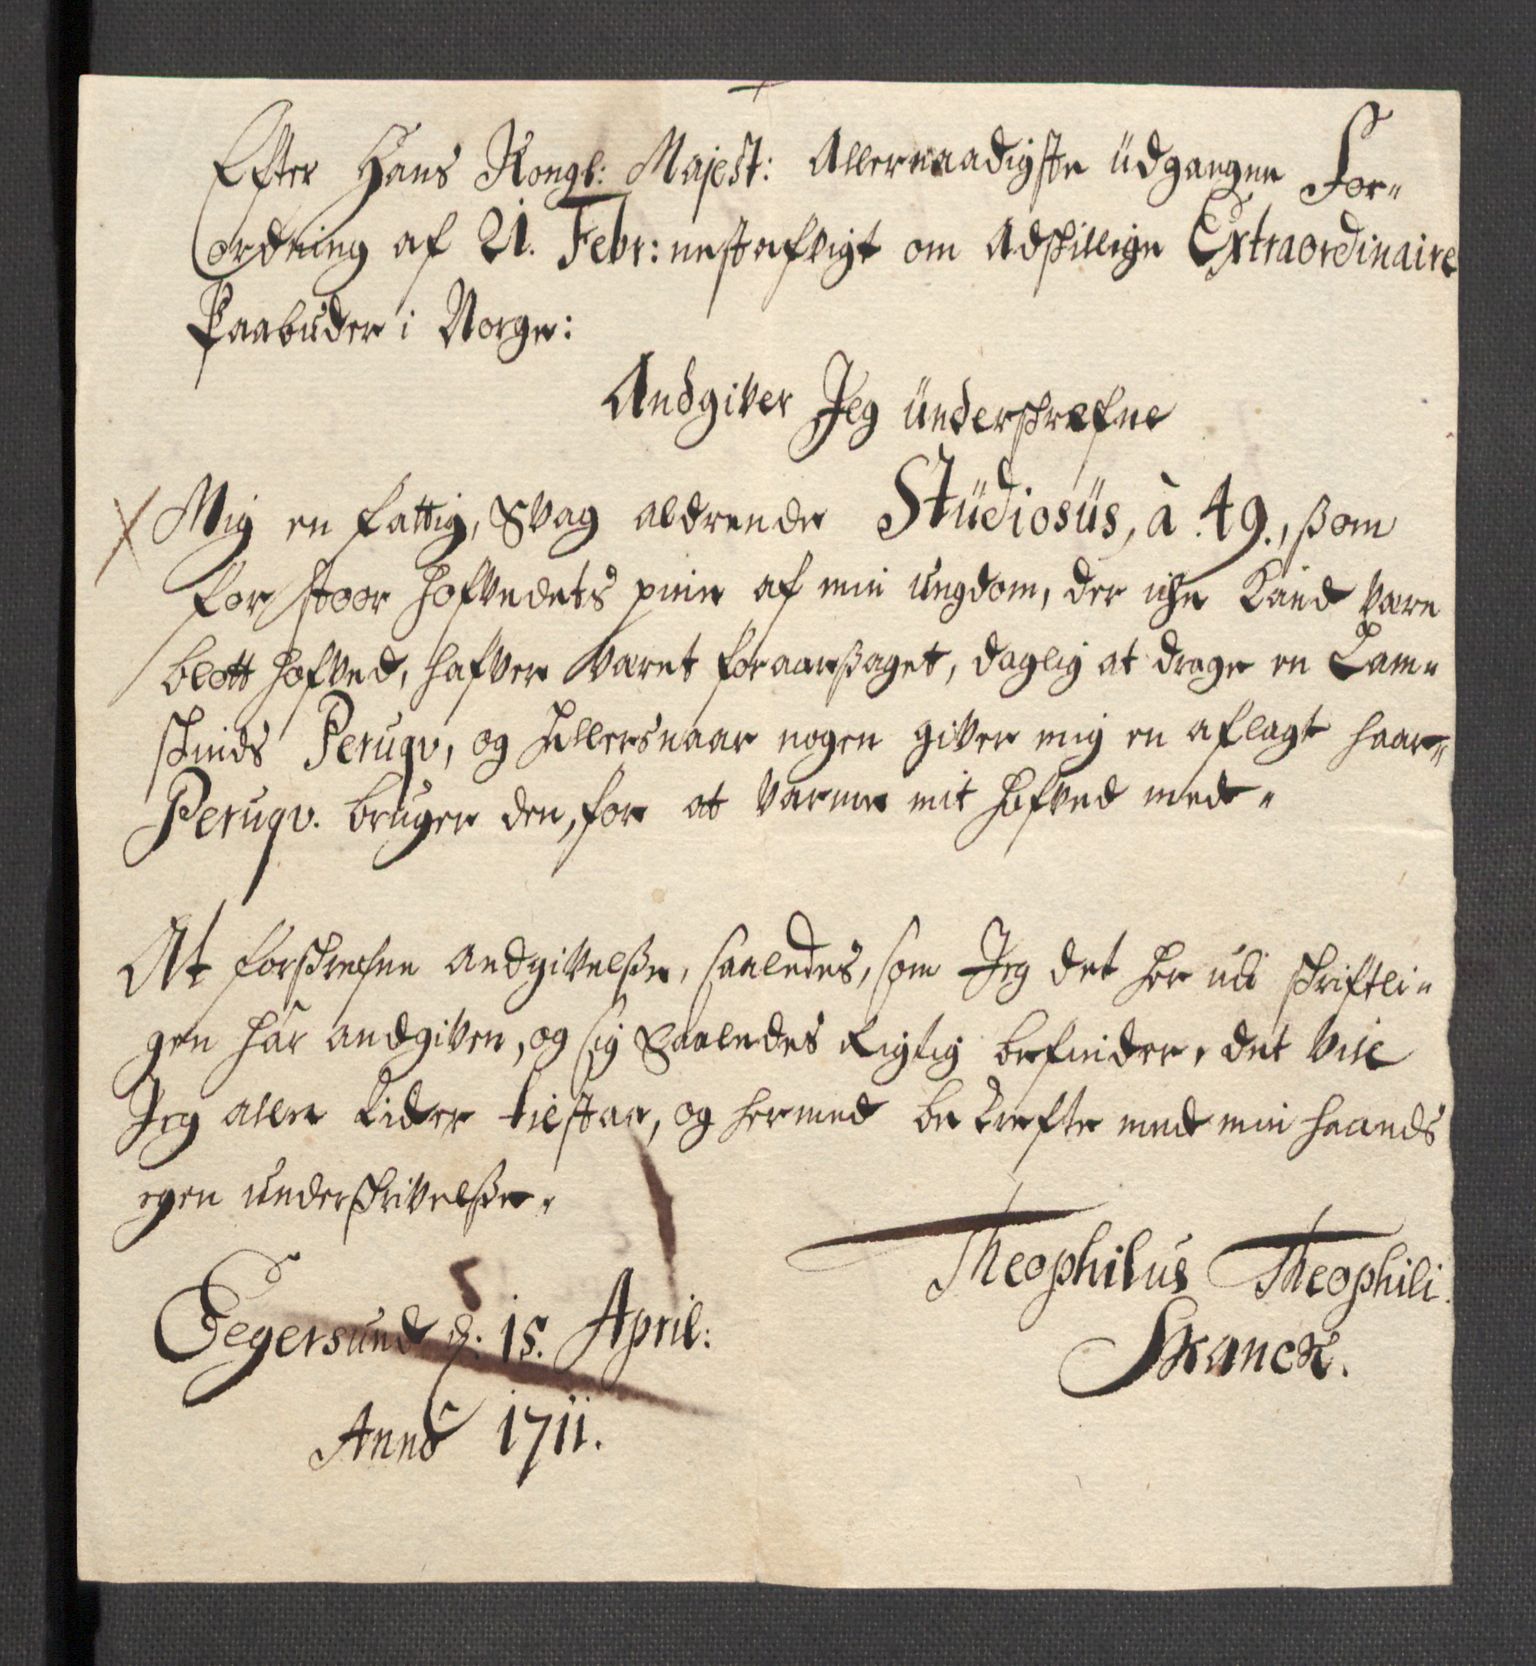 Efter Hans Kongl: Majest: Allernaadigste üdgangne For-
ordning af 21. Febr: nestafvigt om Adskillige Extraordinaire
Paabuder i Norge:
Andgiver Jeg ünderskrefne
Mig en fattig, Svag aldrende Stüdiosüs, à 49., som
for stoor hofvedets piin af min ungdom, der icke kand være
blott hofved, hafver været foraarsaget, daglig at drage en Lam-
skinds Peruqv, og ellers naar nogen giver mig en aflagt haar-
Peruqv. bruger den, for at varme mit hofved med.
At forskrefne andgivelse, saaledes, som Jeg det her udi skriftli-
gen har andgiven, og sig Saaledes Rigtig befinder, det vil
Jeg alle tider tilstaa, og hermed bekrefte med min haands
egen underskrivelse.
Eegersund d. 15. April:
Anno 1711.
Theophilus Theophili
Skanck.